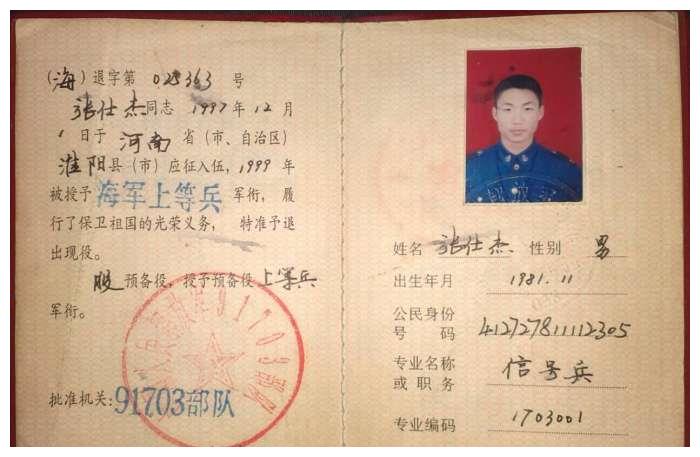 (海)退字第 025363 号
张仕杰同志 1997年12月
1日于 河南 省(市、自治区)
淮阳县(市)应征入伍,1999年
被授予海军上等兵军衔,履
行了保卫祖国的光荣义务,特准予退
出现役。
服预备役,授予预备役上等兵
军衔。
91703
批准机关:91703部队
姓名 张仕杰 性别 男
出生年月 1981.11
公民身份
号码 412727811112305
专业名称
或职务 信号兵
专业编码 1703001